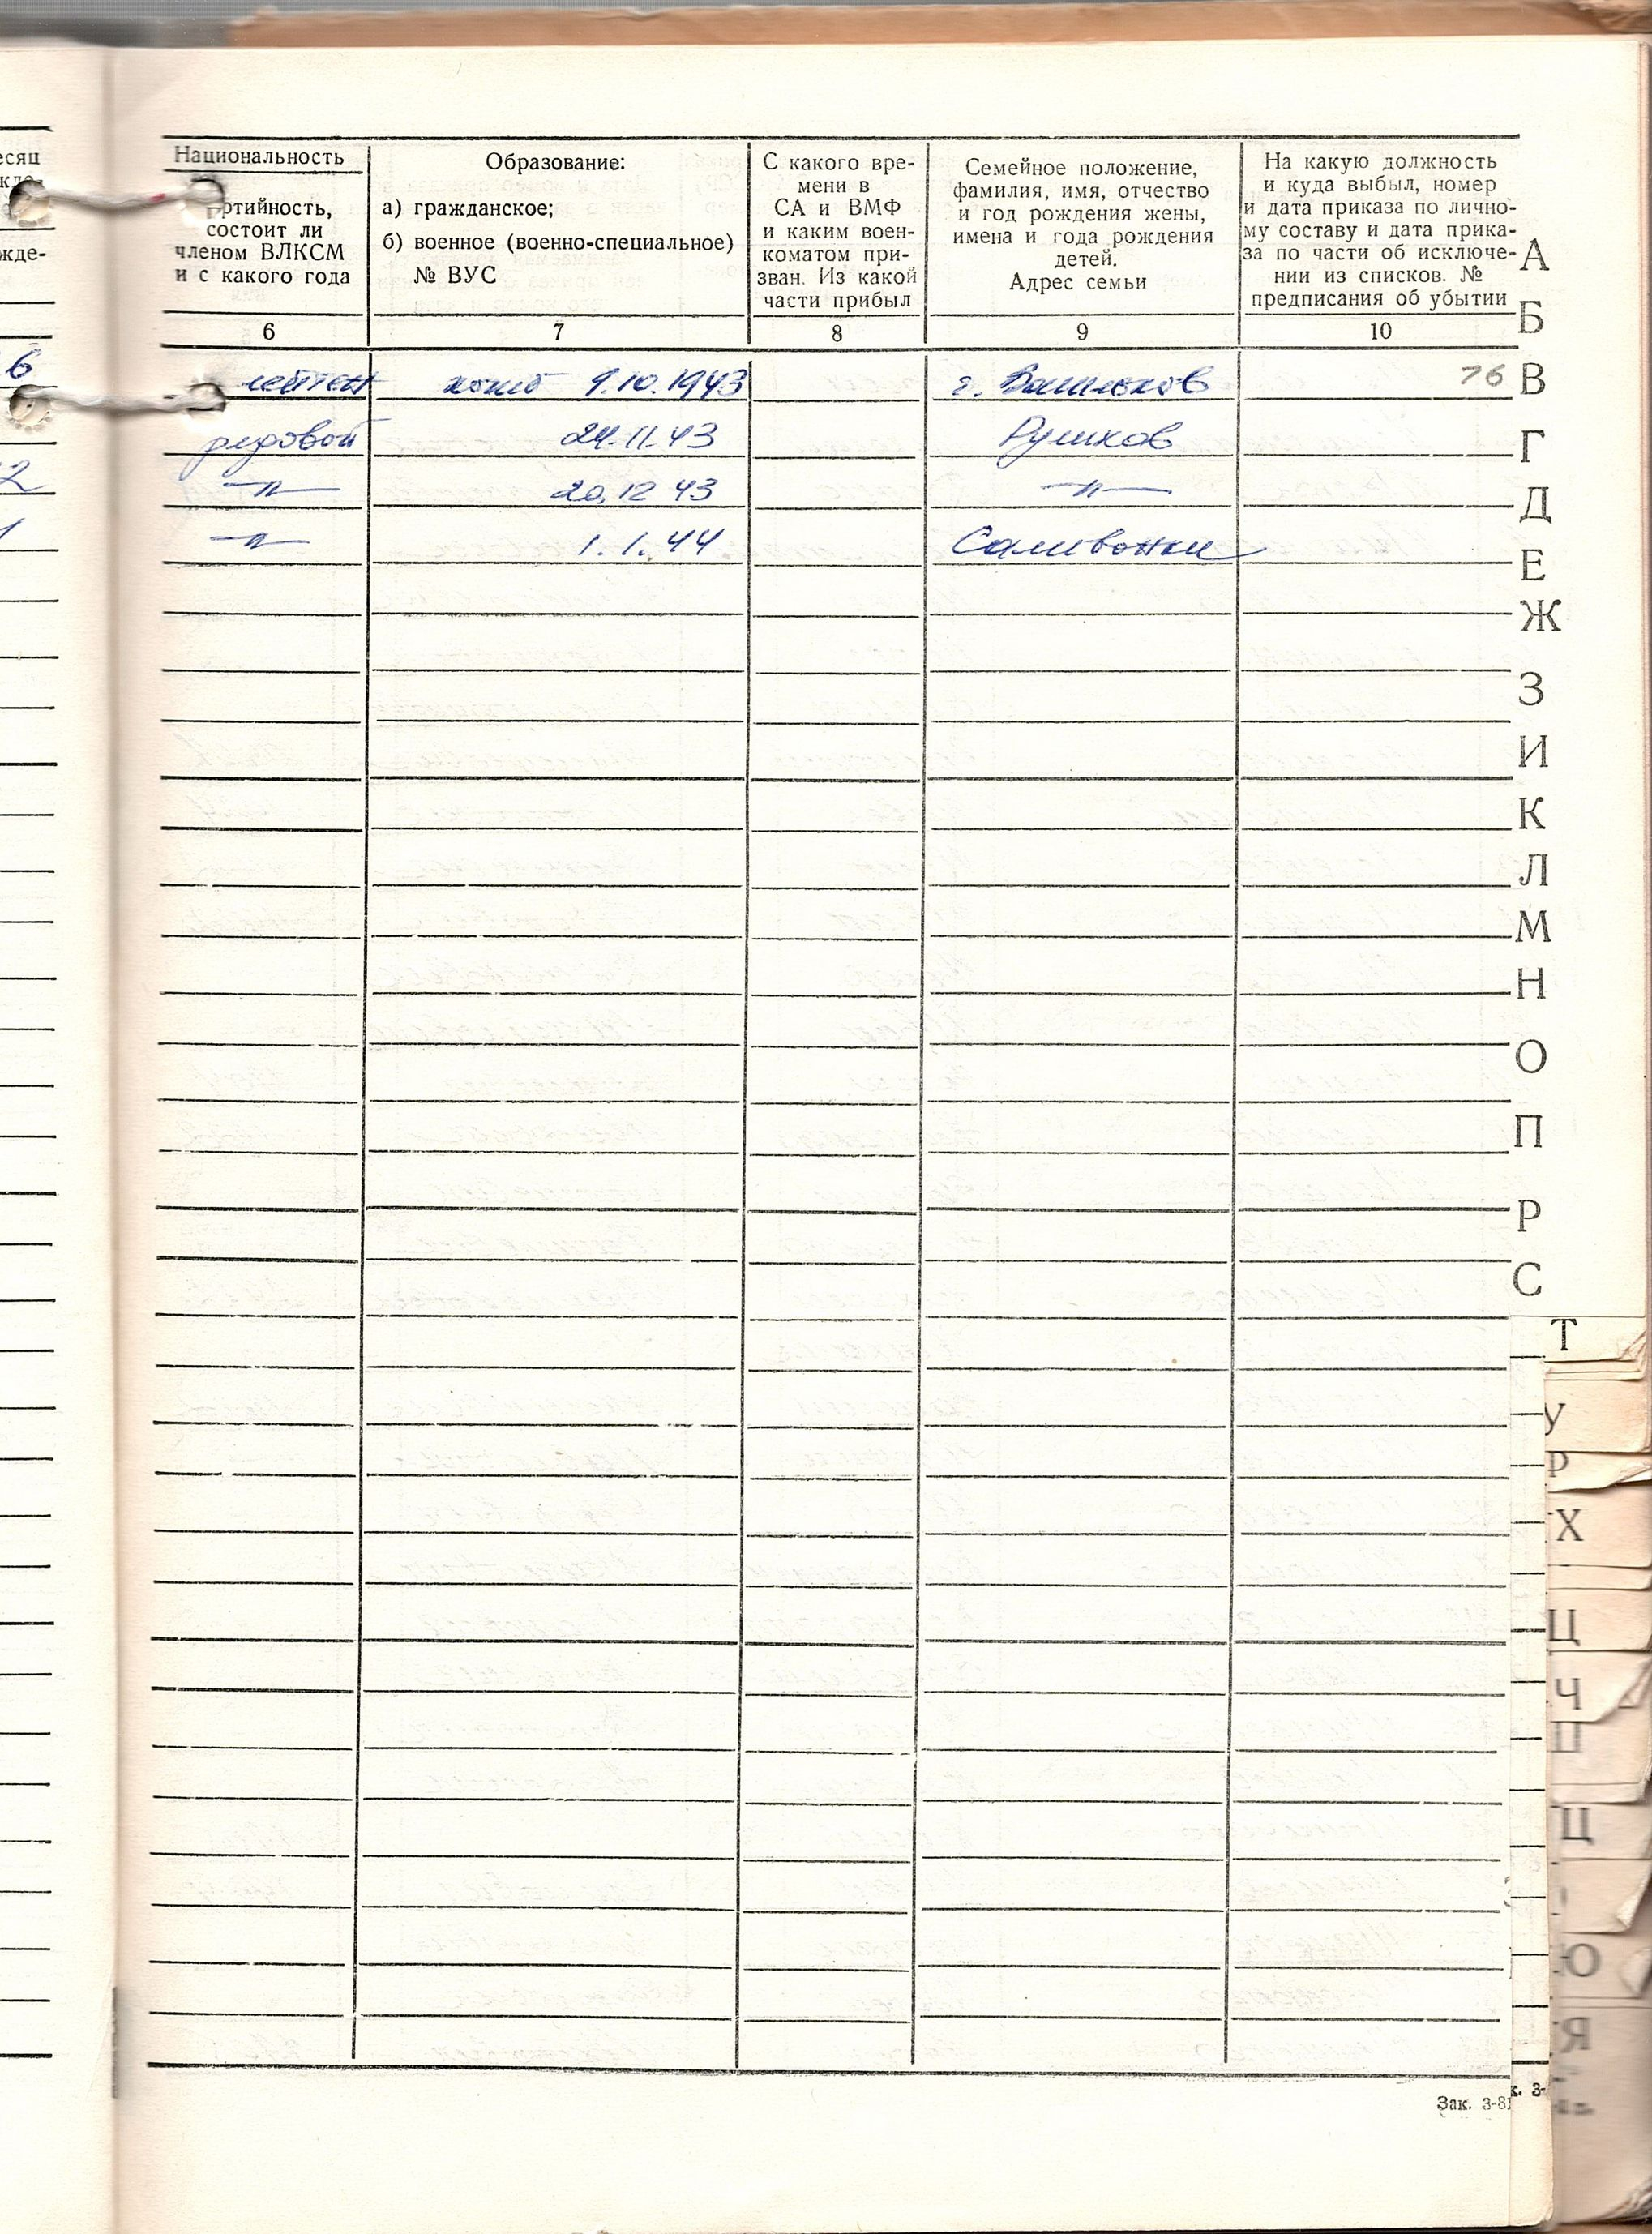 есяц
жде-
Национальность
ртийность,
состоит ли
членом ВЛКСМ
и с какого года
Образование:
а) гражданское;
б) военное (военно-специальное)
№ ВУС
С какого вре-
мени в
СА и ВМФ
и каким воен-
коматом при-
зван. Из какой
части прибыл
Семейное положение,
фамилия, имя, отчество
и год рождения жены,
имена и года рождения
детей.
Адрес семьи
На какую должность
и куда выбыл, номер
и дата приказа по лично-
му составу и дата прика-
за по части об исключе-
нии из списков. №
предписания об убытии
6 7 8 9 10
6 9.10.1943 г. Васильков 76
рядовой 24.11.43
2 —"— 20.12 43 —"—
—"— 1.1.44
А
Б
В
Г
Д
Е
Ж
З
И
К
Л
М
Н
О
П
Р
С
Т
У
Х
Ц
Ч
Ю
Я
Зак. 3-81